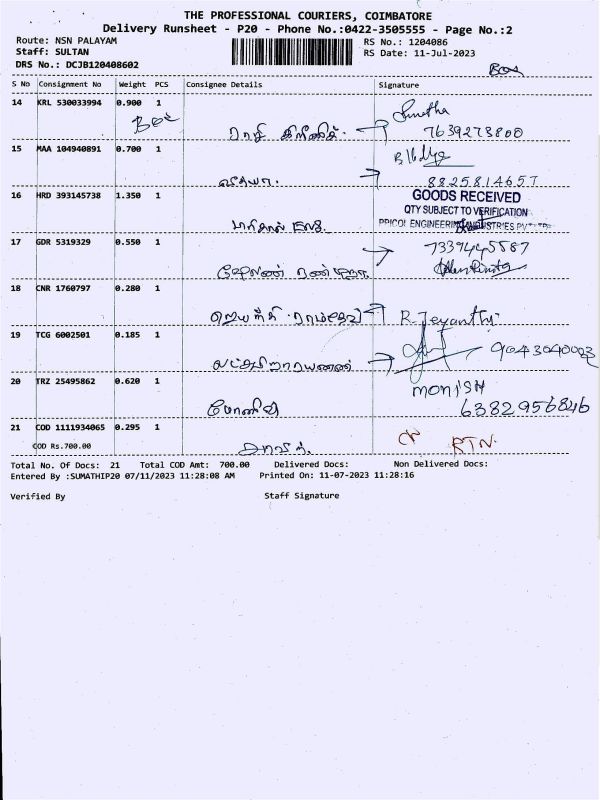 THE PROFESSIONAL COURIERS, COIMBATORE
Delivery Runsheet - P20 - Phone No.:0422-3505555 - Page No.:2
Route: NSN PALAYAM
RS No.: 1204086
Staff: SULTAN
RS Date: 11-Jul-2023
DRS No.: DCJB120408602
S No Consignment No Weight PCS Consignee Details Signature
14 KRL 530033994 0.900 1
7639273800
15 MAA 104940891 0.700 1
8825814657
16 HRD 393145738 1.350 1
GOODS RECEIVED
QTY SUBJECT TO VERIFICATION
PRICOL ENGINEERING
17 GDR 5319329 0.550 1
7339445587
18 CNR 1760797 0.280 1
R. Jeyanthi
19 TCG 6002501 0.185 1
9043040023
20 TRZ 25495862 0.620 1
monish
6382956846
மோனிஷ்
21 COD 1111934065 0.295 1
COD Rs.700.00
RTN.
Total No. Of Docs: 21 Total COD Amt: 700.00 Delivered Docs: Non Delivered Docs:
Entered By :SUMATHIP20 07/11/2023 11:28:08 AM Printed On: 11-07-2023 11:28:16
Verified By Staff Signature